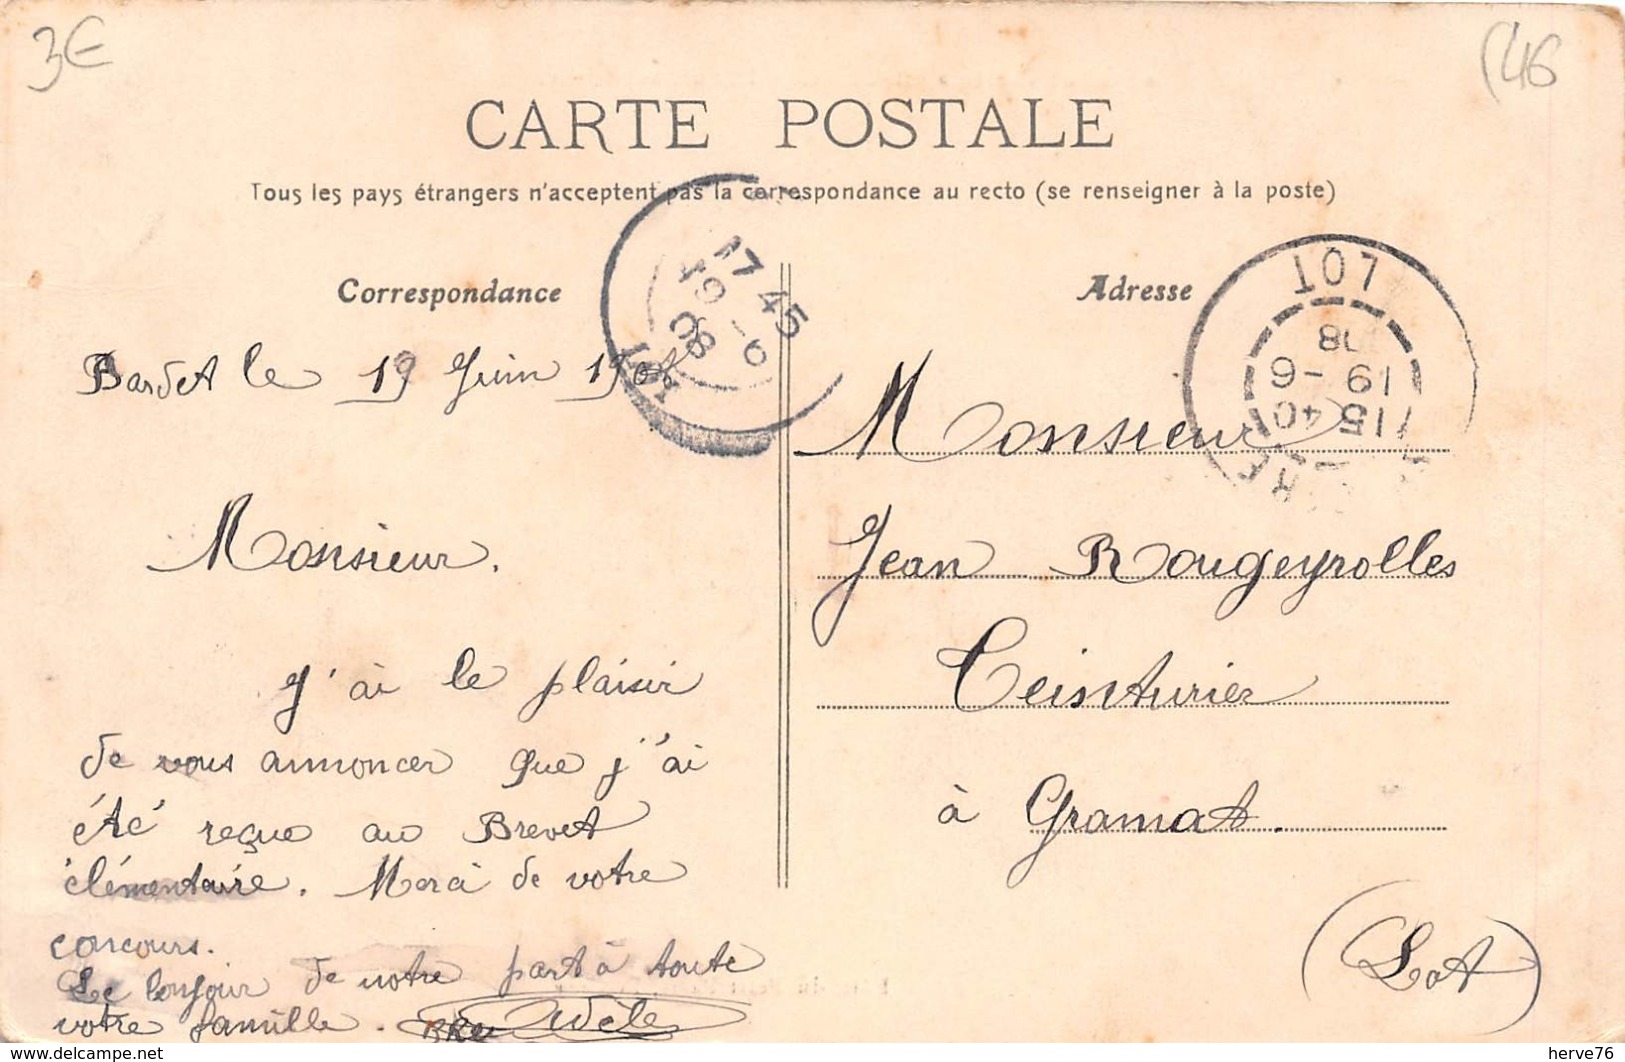 3€
(46
CARTE POSTALE
Tous les pays étrangers n'acceptent pas la correspondance au recto (se renseigner à la poste)
Correspondance
Adresse
17 45
19 - 6
08
LOT
15 40
19 - 6
08
LOT
Bardet le 19 Juin 1908
Monsieur.
J'ai le plaisir
de vous annoncer que j'ai
été reçue au Brevet
élémentaire. Merci de votre
concours.
Le bonjour de notre part à toute
votre famille. Adèle
Monsieur
Jean Rougeyrolles
Teinturier
à Gramat.
(Lot)
http://www.delcampe.net
herve76